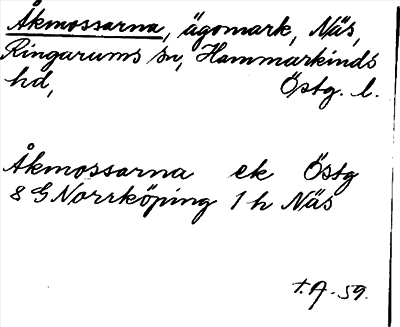 Åkmossarna, ägomark, Näs,
Ringarums sn, Hammarkinds
hd, Östg. l.
Åkmossarna ek Östg
8 G Norrköping 1 h Näs
T.A. 59.